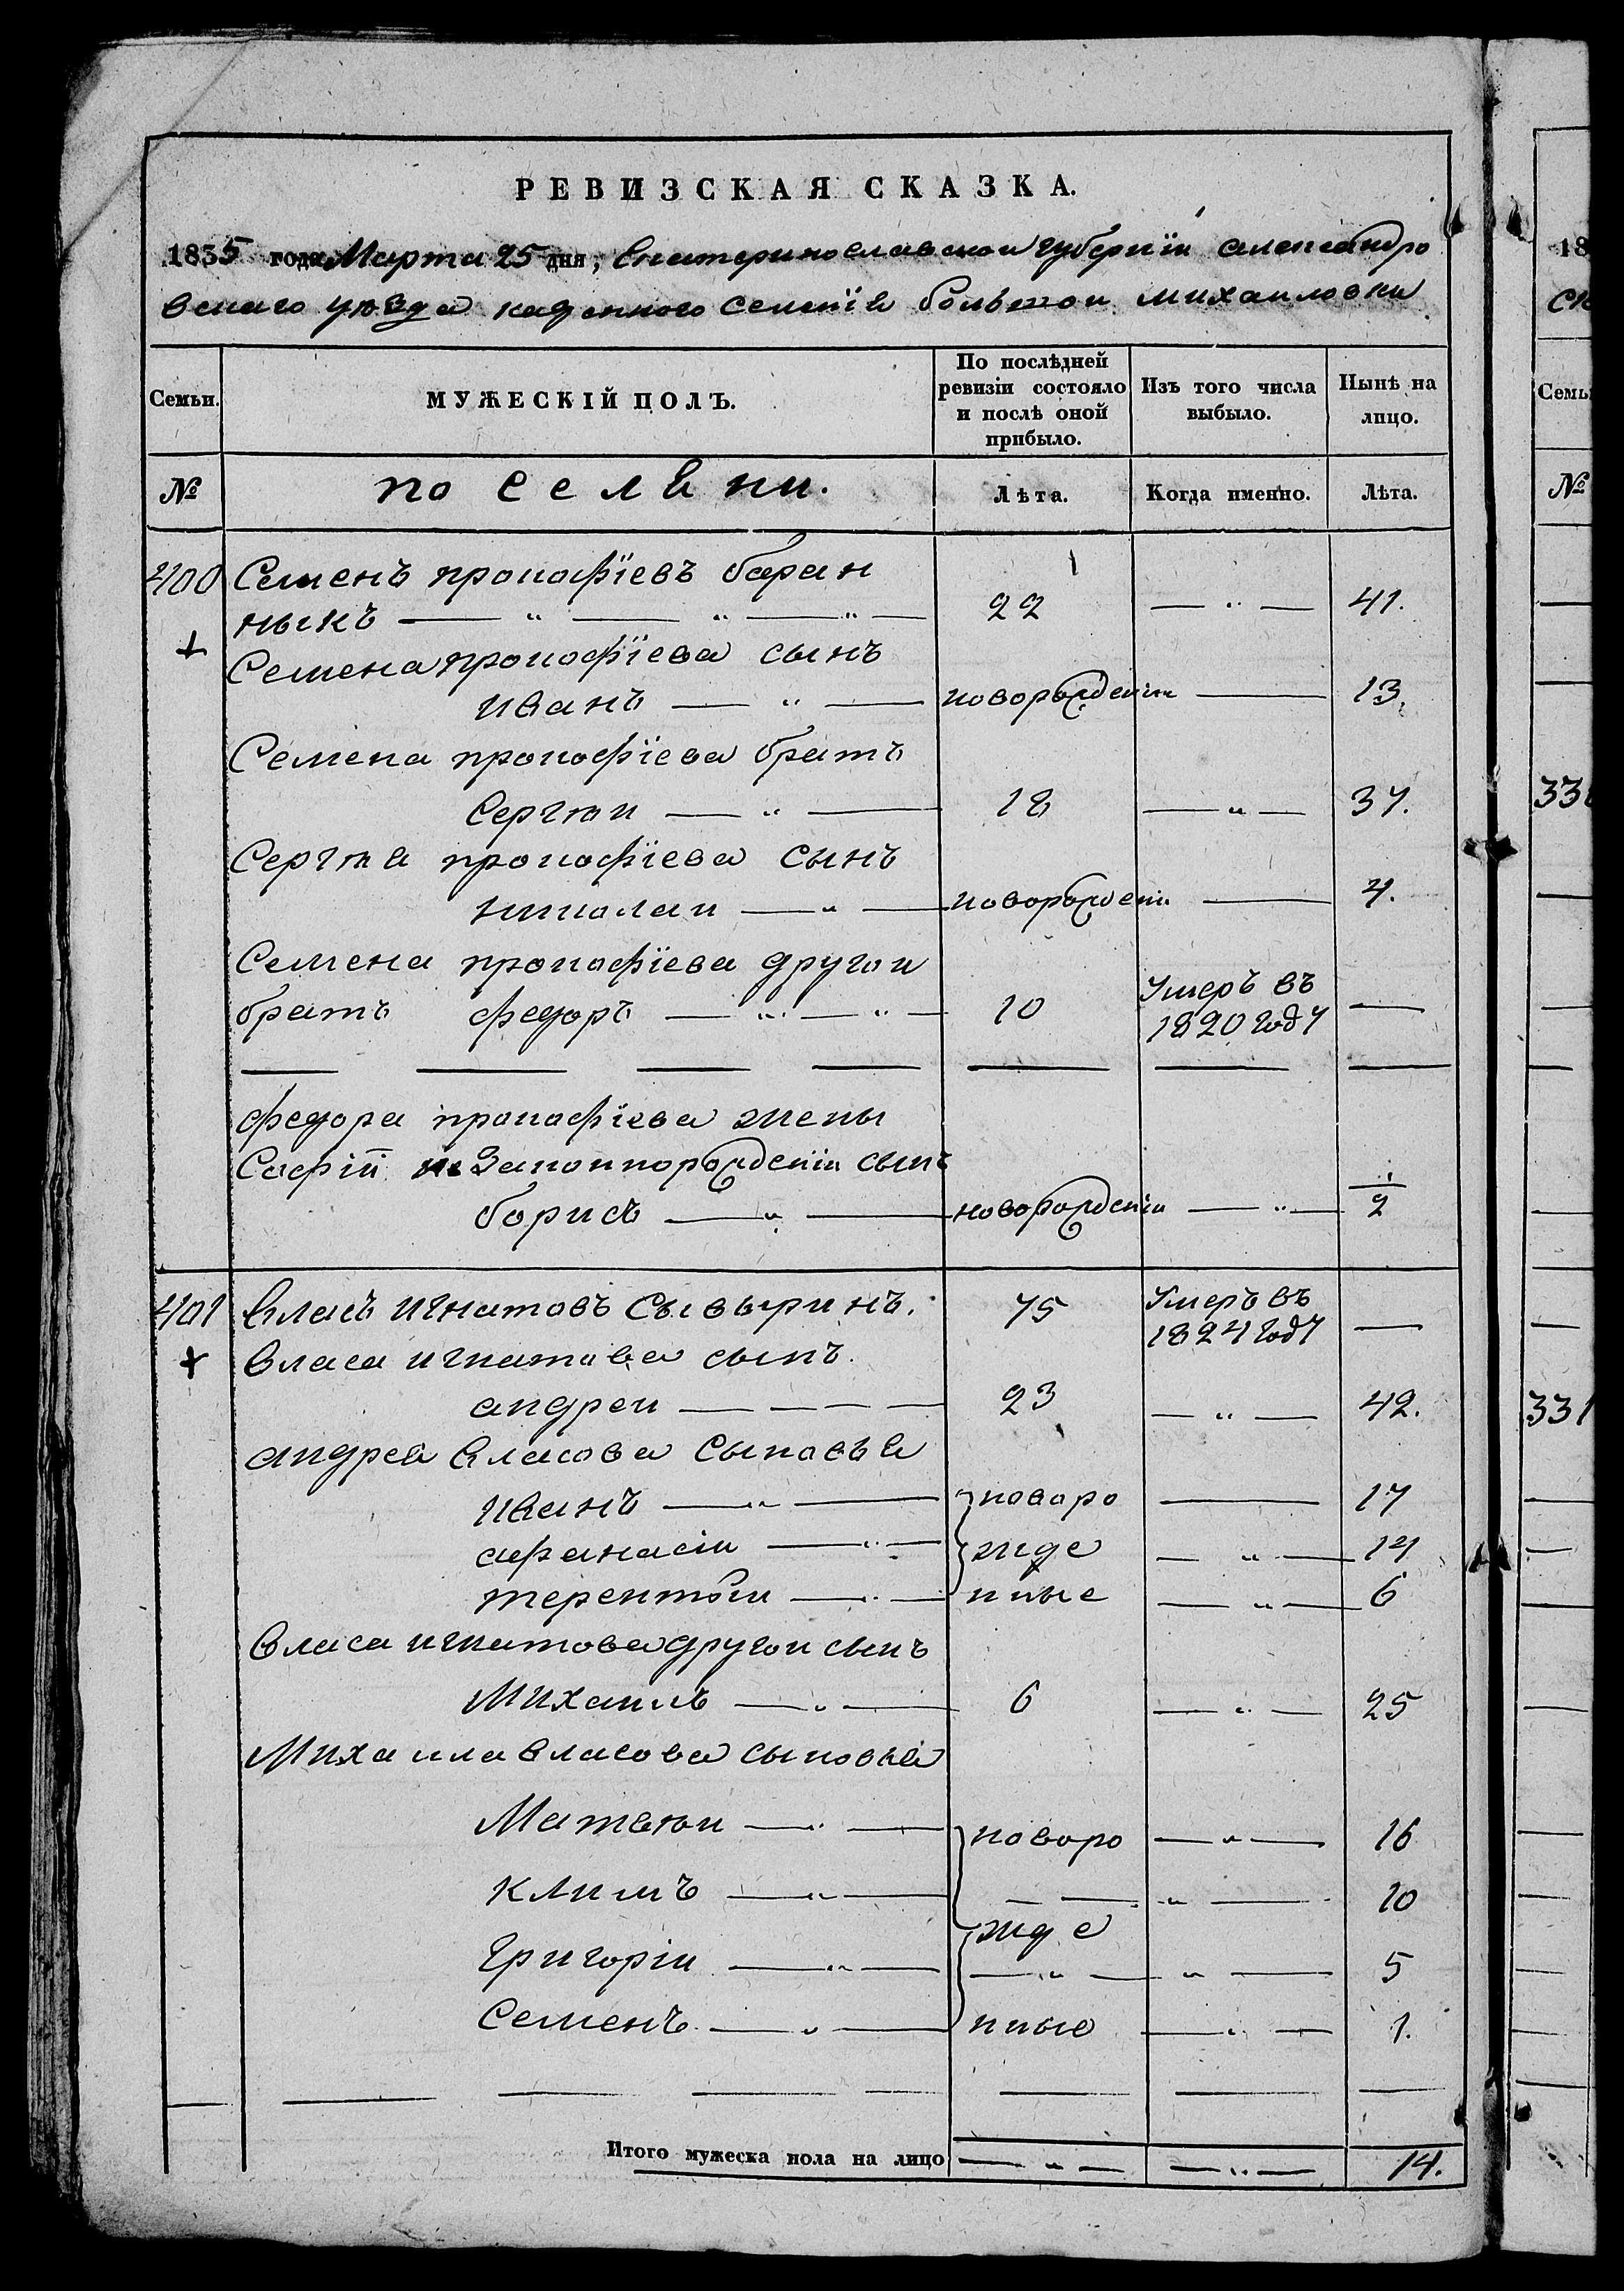 РЕВИЗСКАЯ СКАЗКА.
1835 года Марта 25 дня, Екатеринославскои губернїи александро
вскаго уѣзда казенного селенїя большои михаиловки
Семьи. МУЖЕСКІЙ ПОЛЪ. По послѣдней ревизіи состояло и послѣ оной прибыло. Изъ того числа выбыло. Нынѣ на лицо.
№ поселяни. Лѣта. Когда именно. Лѣта.
400 Семенъ прокофїевъ баран
ныкъ — " — " — " — 22 — " — 41.
Семена прокофїева сынъ
иванъ — " — новорожденїи — 13.
Семена прокофїева братъ
Сергѣи — " — 18 — " — 37.
Сергѣя прокофїева сынъ
николаи — " — новорожденїи — 4.
Семена прокофїева другои
братъ федоръ — " — " — 10 Умеръ въ 1820 году —
федора прокофїева жены
Софїи незаконнорожденїи сынъ
борисъ — " — новорожденїи — " — 1/2
401 власъ игнатовъ Сывыринъ. 75 Умеръ въ 1824 году —
власа игнатова сынъ.
андреи — — — — 23 — " — 42.
андрея власова сыновья
иванъ — " — новоро — 17
афанасїи — " — жде — " — 14
терентїи — " — нные — " — 6
власа игнатова другои сынъ
Михаилъ — " — 6 — " — 25
Михаила власова сыновья
Матвѣи — " — новоро — " — 16
Климъ — " — — — " — 10
жде
Григорїи — " — — " — " — 5
Семенъ — " — нные — " — 1.
Итого мужеска пола на лицо — " — — " — 14.
18
Семь
№
330
331